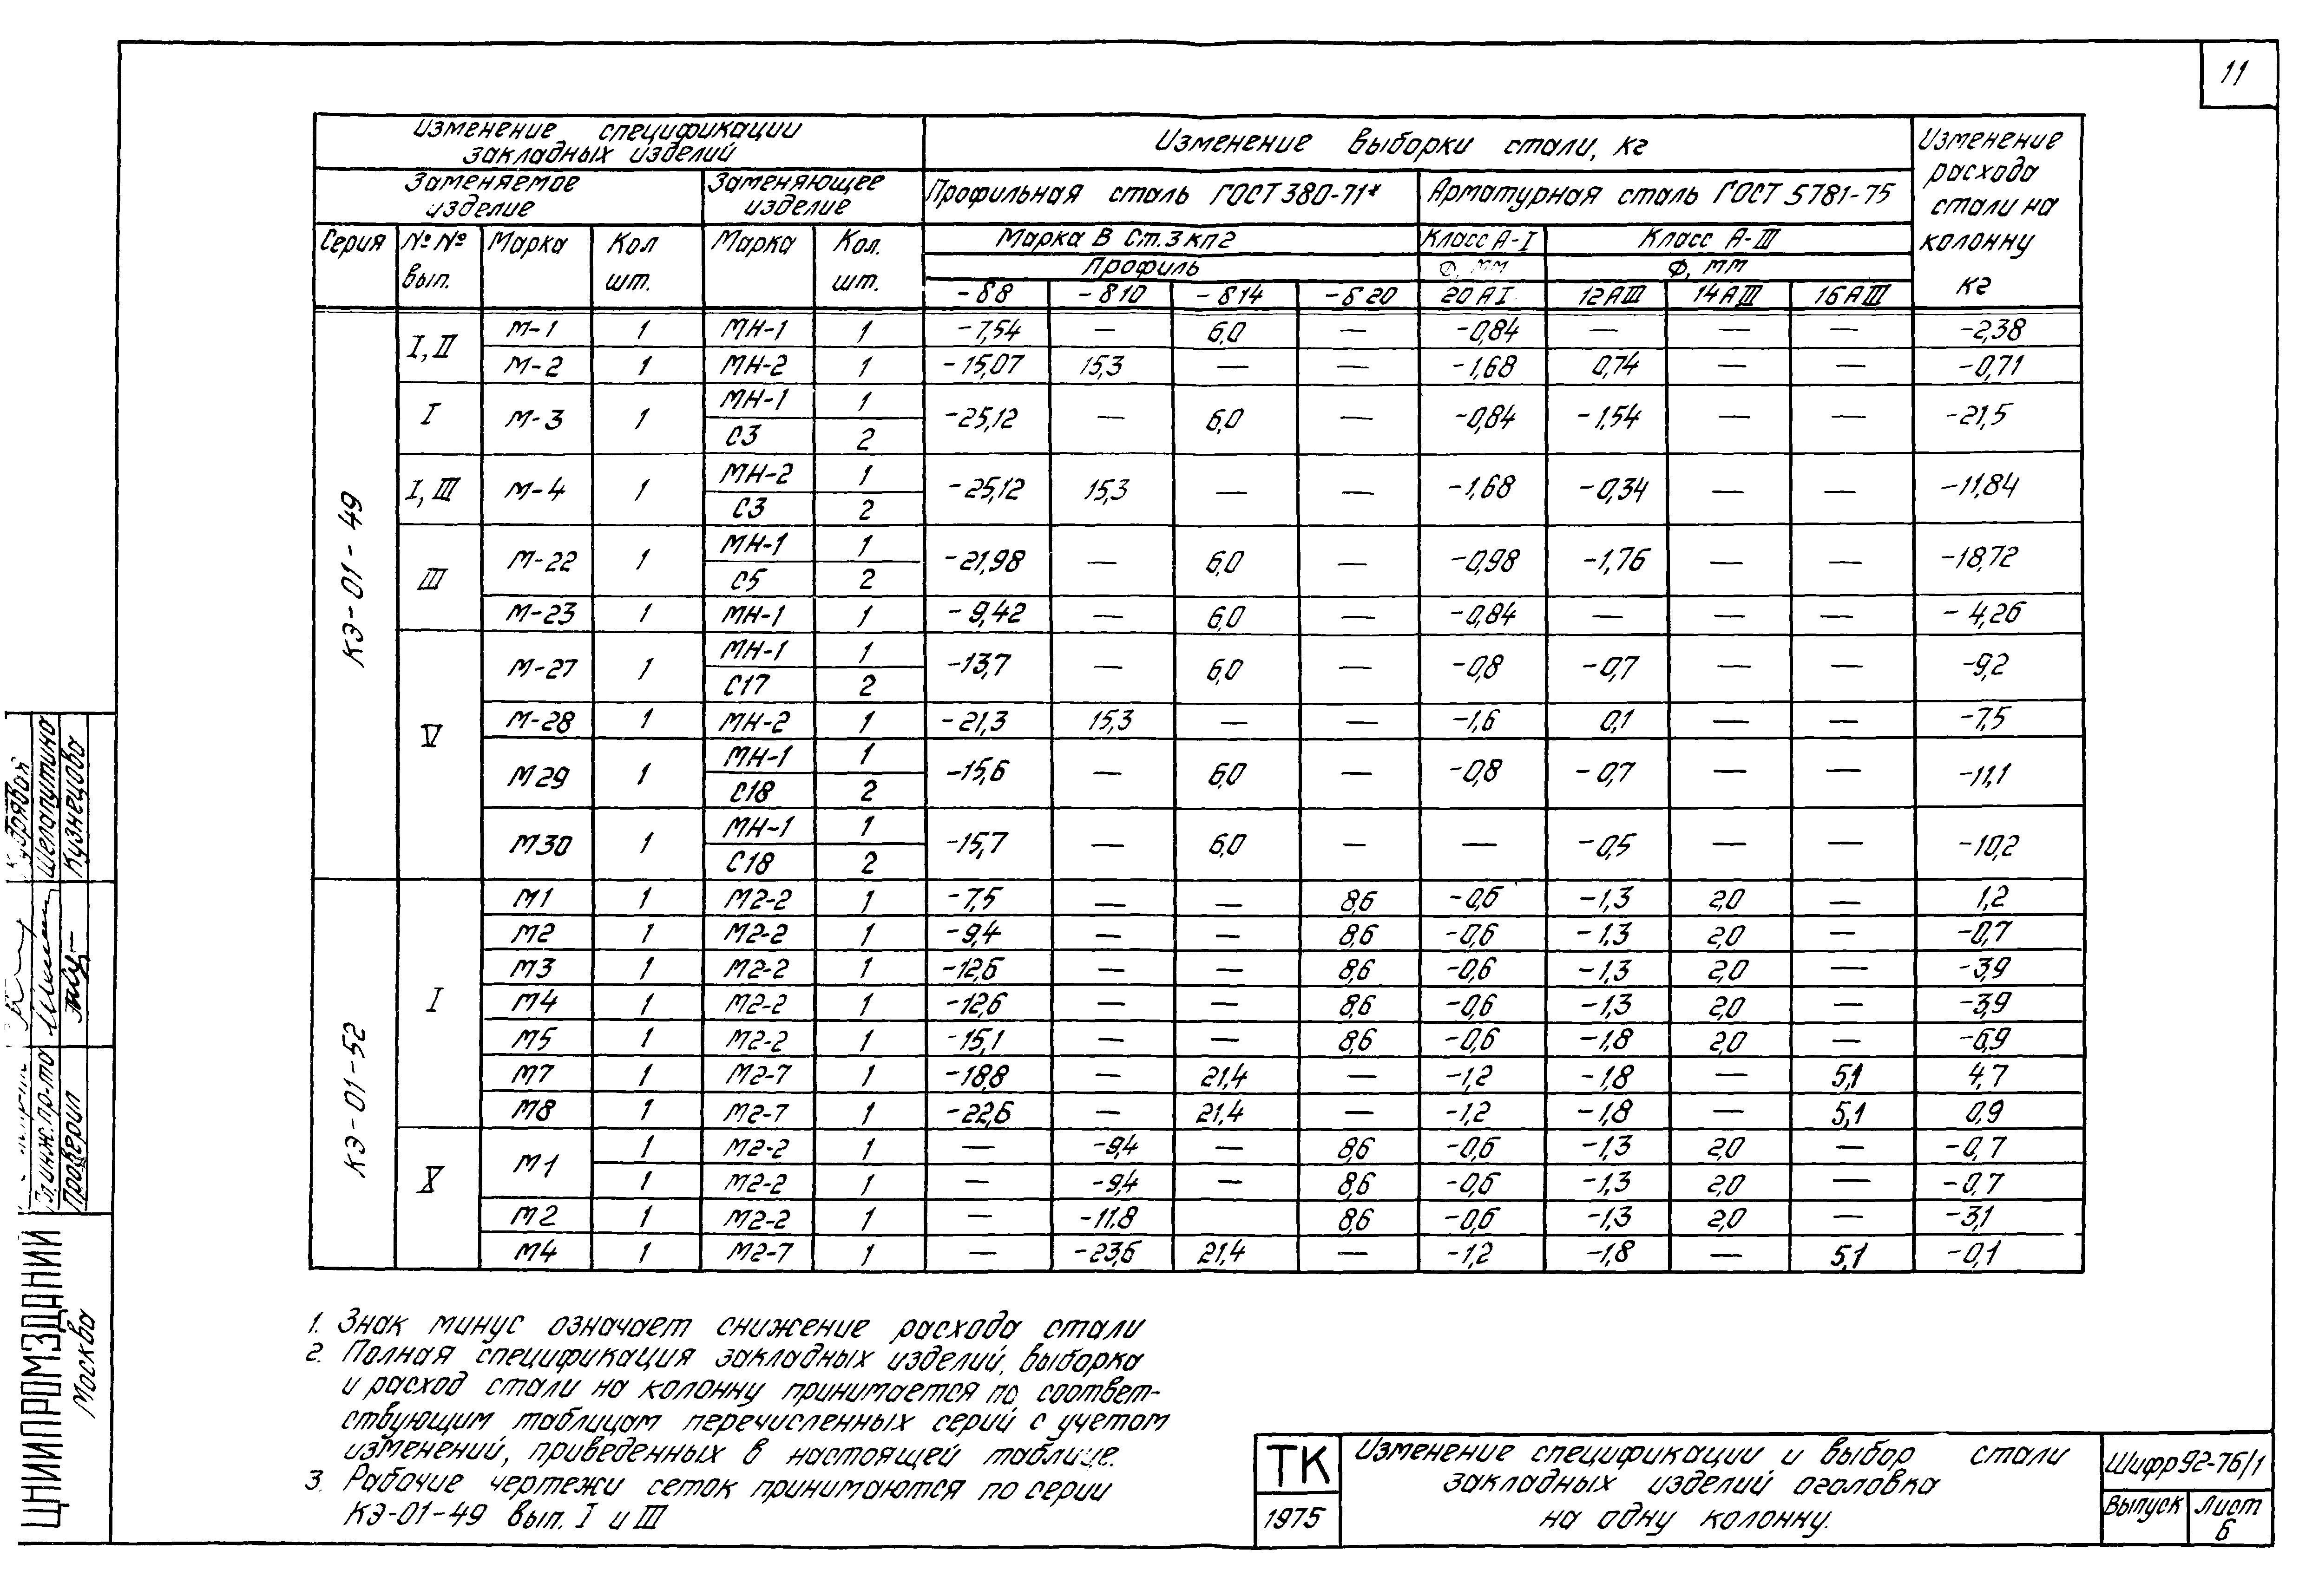 11
Изменение спецификации закладных изделий | Изменение выборки стали, кг | Изменение расхода стали на колонну кг
Заменяемое изделие | Заменяющее изделие | Профильная сталь ГОСТ 380-71* | Арматурная сталь ГОСТ 5781-75
Серия | №№ вып. | Марка | Кол шт. | Марка | Кол. шт. | Марка В Ст.3 кп2 | Класс А-I | Класс А-III
Профиль | Ф, мм | Ф, мм
-δ8 | -δ10 | -δ14 | -δ20 | 20АI | 12АIII | 14АIII | 16АIII
КЭ-01-49
I, II | М-1 | 1 | МН-1 | 1 | -7,54 | — | 6,0 | — | -0,84 | — | — | — | -2,38
М-2 | 1 | МН-2 | 1 | -15,07 | 15,3 | — | — | -1,68 | 0,74 | — | — | -0,71
I | М-3 | 1 | МН-1 | 1 | -25,12 | — | 6,0 | — | -0,84 | -1,54 | — | — | -21,5
С3 | 2
I, III | М-4 | 1 | МН-2 | 1 | -25,12 | 15,3 | — | — | -1,68 | -0,34 | — | — | -11,84
С3 | 2
III | М-22 | 1 | МН-1 | 1 | -21,98 | — | 6,0 | — | -0,98 | -1,76 | — | — | -18,72
С5 | 2
М-23 | 1 | МН-1 | 1 | -9,42 | — | 6,0 | — | -0,84 | — | — | — | -4,26
V | М-27 | 1 | МН-1 | 1 | -13,7 | — | 6,0 | — | -0,8 | -0,7 | — | — | -9,2
С17 | 2
М-28 | 1 | МН-2 | 1 | -21,3 | 15,3 | — | — | -1,6 | 0,1 | — | — | -7,5
М29 | 1 | МН-1 | 1 | -15,6 | — | 6,0 | — | -0,8 | -0,7 | — | — | -11,1
С18 | 2
М30 | 1 | МН-1 | 1 | -15,7 | — | 6,0 | — | — | -0,5 | — | — | -10,2
С18 | 2
КЭ-01-52
I | М1 | 1 | М2-2 | 1 | -7,5 | — | — | 8,6 | -0,6 | -1,3 | 2,0 | — | 1,2
М2 | 1 | М2-2 | 1 | -9,4 | — | — | 8,6 | -0,6 | -1,3 | 2,0 | — | -0,7
М3 | 1 | М2-2 | 1 | -12,6 | — | — | 8,6 | -0,6 | -1,3 | 2,0 | — | -3,9
М4 | 1 | М2-2 | 1 | -12,6 | — | — | 8,6 | -0,6 | -1,3 | 2,0 | — | -3,9
М5 | 1 | М2-2 | 1 | -15,1 | — | — | 8,6 | -0,6 | -1,8 | 2,0 | — | -6,9
М7 | 1 | М2-7 | 1 | -18,8 | — | 21,4 | — | -1,2 | -1,8 | — | 5,1 | 4,7
М8 | 1 | М2-7 | 1 | -22,6 | — | 21,4 | — | -1,2 | -1,8 | — | 5,1 | 0,9
X | М1 | 1 | М2-2 | 1 | — | -9,4 | — | 8,6 | -0,6 | -1,3 | 2,0 | — | -0,7
1 | М2-2 | 1 | — | -9,4 | — | 8,6 | -0,6 | -1,3 | 2,0 | — | -0,7
М2 | 1 | М2-2 | 1 | — | -11,8 | | 8,6 | -0,6 | -1,3 | 2,0 | — | -3,1
М4 | 1 | М2-7 | 1 | — | -23,6 | 21,4 | — | -1,2 | -1,8 | — | 5,1 | -0,1
1. Знак минус означает снижение расхода стали
2. Полная спецификация закладных изделий, выборка
и расход стали на колонну принимается по соответ-
ствующим таблицам перечисленных серий с учетом
изменений, приведенных в настоящей таблице.
3. Рабочие чертежи сеток принимаются по серии
КЭ-01-49 вып. I и III
ТК
1975
Изменение спецификации и выбор стали
закладных изделий оголовка
на одну колонну.
Шифр 92-76/1
Выпуск | Лист
6
Шелапутина
Кузнецова
Гл.инж.пр-та
Проверил
ЦНИИПРОМЗДАНИЙ
Москва